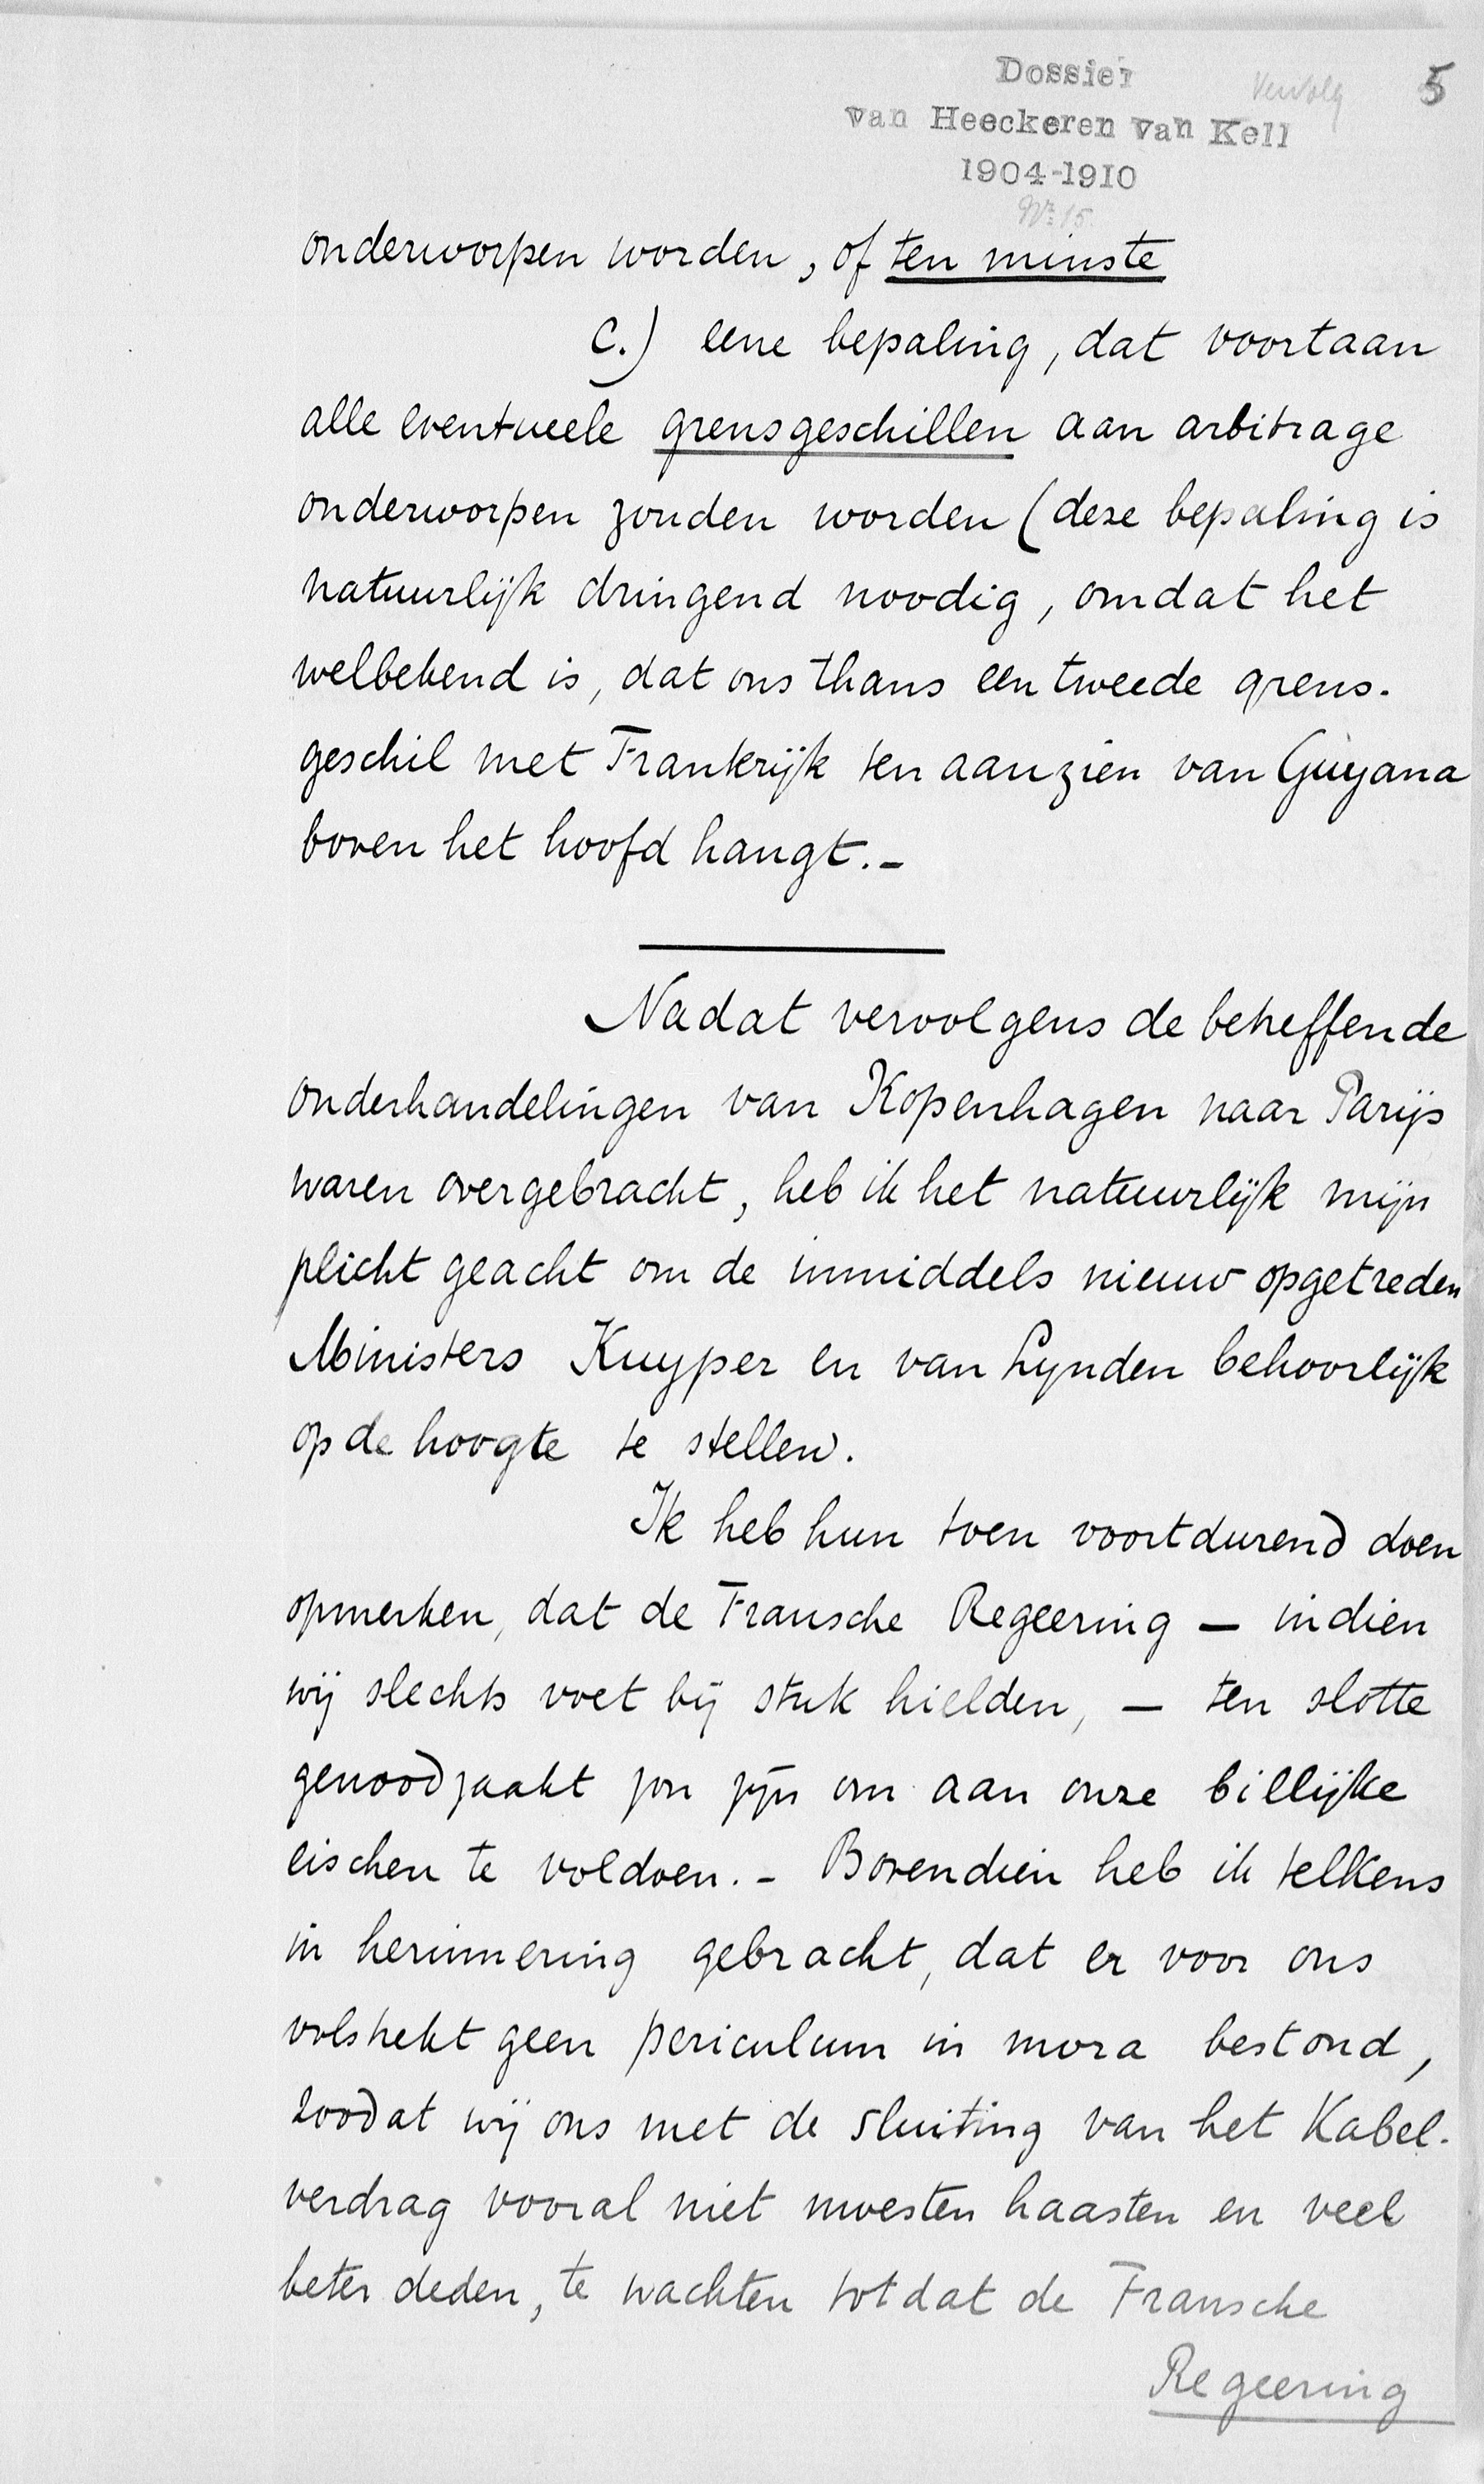 Dossier
vervolg 5
van Heeckeren van Kell
1904-1910
No 15.
onderworpen worden, of ten minste
C.) eene bepaling, dat voortaan
alle eventueele grensgeschillen aan arbitrage
onderworpen zouden worden (deze bepaling is
natuurlijk dringend noodig, omdat het
welbekend is, dat ons thans een tweede grens-
geschil met Frankrijk ten aanzien van Guyana
boven het hoofd hangt.-
Nadat vervolgens de betreffende
onderhandelingen van Kopenhagen naar Parijs
waren overgebracht, heb ik het natuurlijk mijn
plicht geacht om de inmiddels nieuw opgetreden
Ministers Kuyper en van Lynden behoorlijk
op de hoogte te stellen.
Ik heb hun toen voortdurend doen
opmerken, dat de Fransche Regeering — indien
wij slechts voet bij stuk hielden, — ten slotte
genoodzaakt zou zijn om aan onze billijke
eischen te voldoen. - Bovendien heb ik telkens
in herinnering gebracht, dat er voor ons
volstrekt geen periculum in mora bestond,
zoodat wij ons met de sluiting van het Kabel-
verdrag vooral niet moesten haasten en veel
beter deden, te wachten totdat de Fransche
Regeering